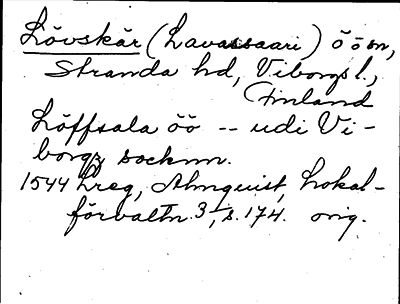 Lövskär (Lavassaari) öösn,
Stranda hd, Viborgs l.,
Finland
Löffsala öö -- udi Vi-
borgz socknn.
1544 Lreg, Almquist, Lokal-
förvaltn. 3/1, s. 174. orig.